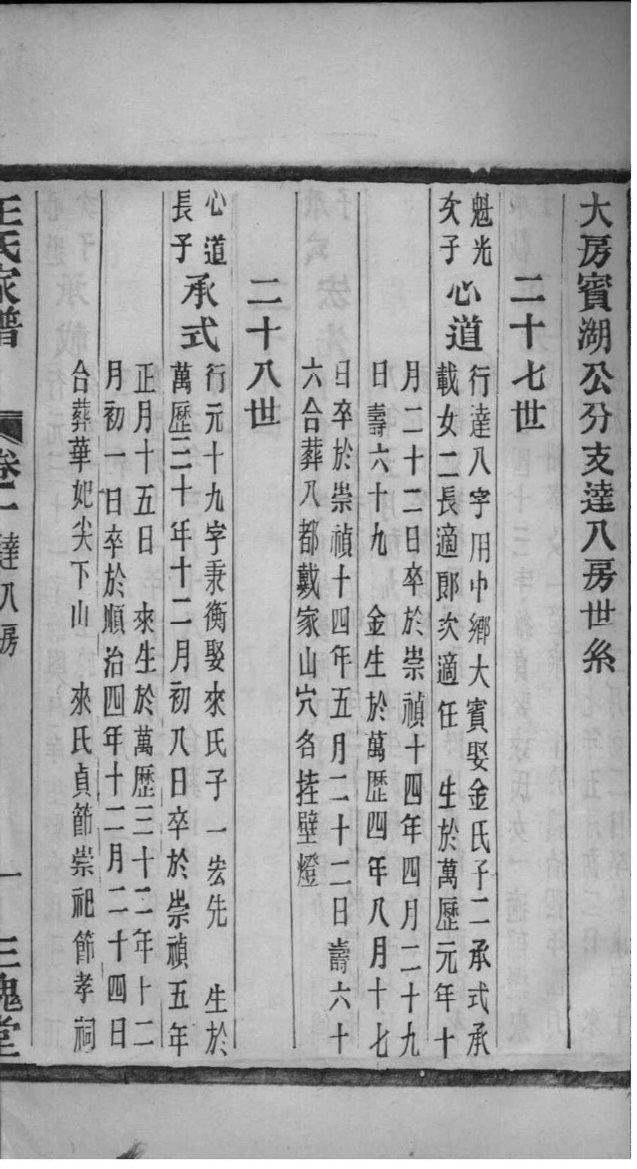 大房賓湖公分支達八房世系
二十七世
魁光
次子
心道
行達八字用中鄉大賓娶金氏子二承式承
載女二長適郎次適任 生於萬歷元年十
月二十二日卒於崇禎十四年四月二十九
日壽六十九 金生於萬歷四年八月十七
日卒於崇禎十四年五月二十二日壽六十
六合葬八都戴家山穴各挂壁燈
二十八世
心道
長子
承式
行元十九字秉衡娶來氏子一宏先 生於
萬歷三十年十二月初八日卒於崇禎五年
正月十五日 來生於萬歷三十二年十二
月初一日卒於順治四年十二月二十四日
合葬華妃尖下山 來氏貞節崇祀節孝祠
王氏家譜 卷二 達八房 一 三槐堂